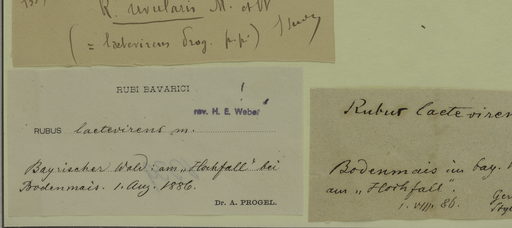 R. rivularis M. et W
(= laetevirens Prog. p.p.)
RUBI BAVARICI
rev. H. E. Weber
RUBUS laetevirens m.
Bayrischer Wald: am „Hochfall" bei
Bodenmais. 1. Aug. 1886.
Dr. A. PROGEL.
Rubus laetevirens
Bodenmais im bay. W
am „Hochfall".
1. VIII. 86.